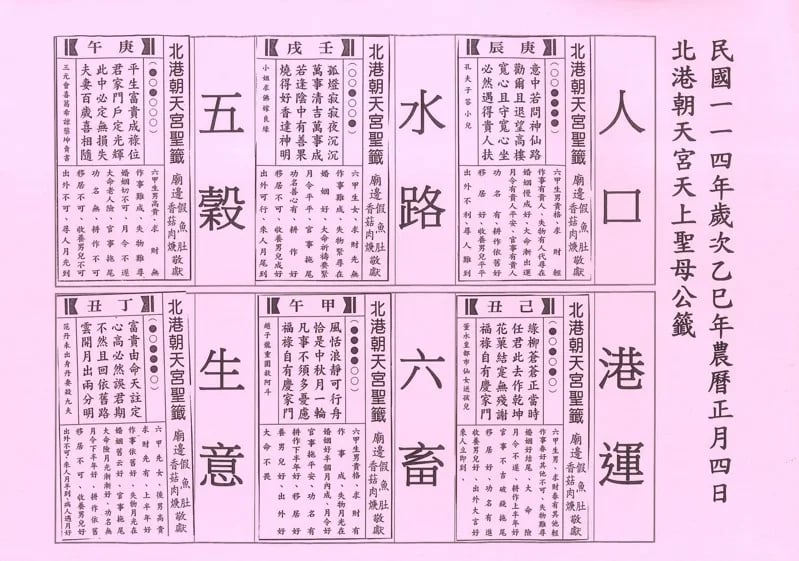 民國一一四年歲次乙巳年農曆正月四日
北港朝天宮天上聖母公籤
人口
北港朝天宮聖籤
廟邊假魚肚
香菇肉焿敬獻
庚辰
意中若問神仙路
勸爾且退望高樓
寬心且守寬心坐
必然遇得貴人扶
孔夫子答小兒
六甲生男貴格、求財輕
作事有貴人、失物有人代尋在
婚姻慢成好、大命漸出運
月令有貴人平安、官事有貴人
功名有、耕作依舊好
移居好、收養男兒平平
出外不利、尋人難到
水路
北港朝天宮聖籤
廟邊假魚肚
香菇肉焿敬獻
壬戌
孤燈寂寂夜沉沉
萬事清吉萬事成
若逢陰中有善果
燒得好香達神明
六甲生女、求財先無
作事難成、失物緊尋在
婚姻好、大命祈禱要緊
月令平平、官事拖尾
功名善心有、耕作好
移居好、收養男兒成好
出外可行、來人月尾到
五穀
北港朝天宮聖籤
廟邊假魚肚
香菇肉焿敬獻
庚午
平生富貴成祿位
君家門戶定光輝
此中必定無損失
夫妻百歲喜相隨
六甲生男高貴、求財無
作事難成、失物難尋
婚姻切不可、月令不遂
大命老人險、官事拖尾
功名無、耕作不可
移居不可、收養男兒不可
出外不可、尋人月光到
港運
北港朝天宮聖籤
廟邊假魚肚
香菇肉焿敬獻
己丑
綠柳蒼蒼正當時
任君此去作乾坤
花菓結定無殘謝
福祿自有慶家門
六甲生男、求財春有其他輕
作事春好其他不可、失物難尋
婚姻好結尾、大命險
月令不遂、耕作上年好
官事不吉破錢拖尾
移居好、功名有進
收養男兒好、出外大吉好
來人立即到、
六畜
北港朝天宮聖籤
廟邊假魚肚
香菇肉焿敬獻
甲午
風恬浪靜可行舟
恰是中秋月一輪
凡事不須多憂慮
福祿自有慶家門
趙子龍重圍救阿斗
六甲生男貴格、求財有
作事成、失物月光在
婚姻好半個月內成、月令好
官事拖平安、功名有
耕作下半年好、移居好
養男兒好、出外好
大命不畏
生意
北港朝天宮聖籤
廟邊假魚肚
香菇肉焿敬獻
丁丑
富貴由命天註定
心高必然誤君期
不然且回依舊路
雲開月出兩分明
六甲先女、後男高貴
求財先有、上半年好
作事依舊好、失物月光在
婚姻舊云好、官事拖尾
大命險月光漸漸好、功名無
月令下半年好、耕作依舊
移居不可、收養男兒好
出外不可、來人月半到、病人過月好